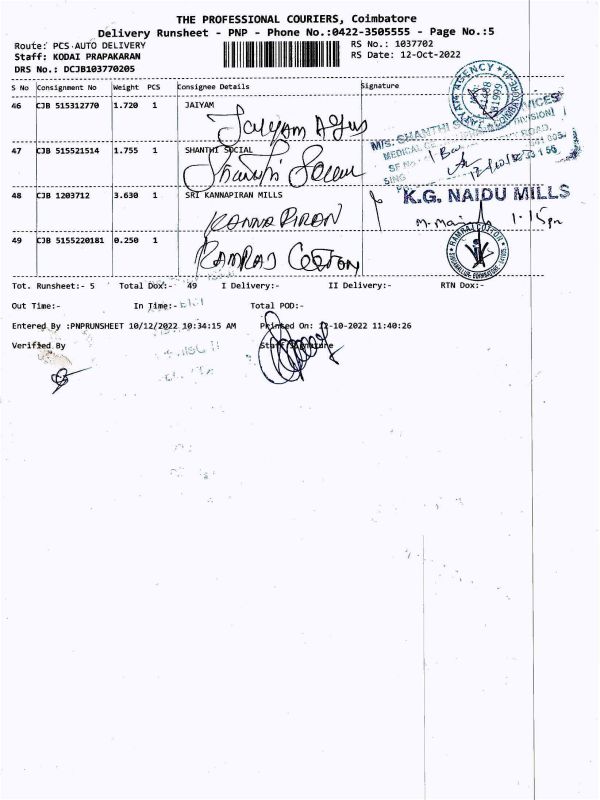 THE PROFESSIONAL COURIERS, Coimbatore
Delivery Runsheet - PNP - Phone No.:0422-3505555 - Page No.:5
Route: PCS AUTO DELIVERY RS No.: 1037702
Staff: KODAI PRAPAKARAN RS Date: 12-Oct-2022
DRS No.: DCJB103770205
S No Consignment No Weight PCS Consignee Details Signature
46 CJB 515312770 1.720 1 JAIYAM
Jaiyam Agus
47 CJB 515521514 1.755 1 SHANTHI SOCIAL
Shanthi Social
M/S. SHANTHI SERVICES
MEDICAL
48 CJB 1203712 3.630 1 SRI KANNAPIRAN MILLS
K.G. NAIDU MILLS
KANNAPIRAN
1-15pm
49 CJB 5155220181 0.250 1
RAMRAJ COTTON
RAMRAJ COTTON
Tot. Runsheet:- 5 Total Dox:- 49 I Delivery:- II Delivery:- RTN Dox:-
Out Time:- In Time:- Total POD:-
Entered By :PNPRUNSHEET 10/12/2022 10:34:15 AM Printed On: 12-10-2022 11:40:26
Verified By Staff Signature